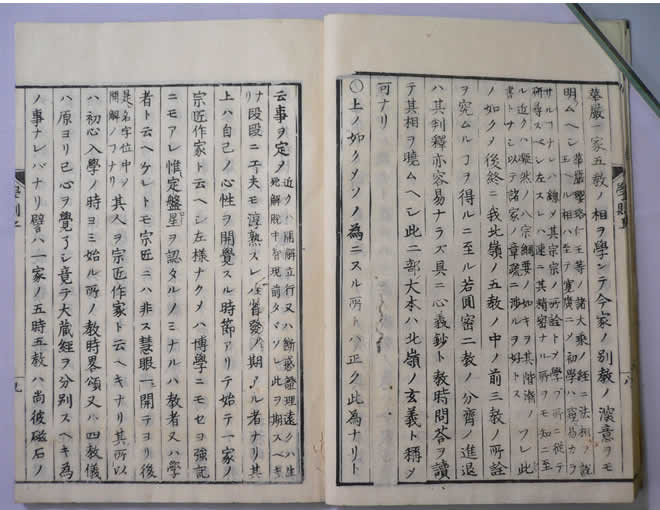 華嚴一家五教ノ相ヲ學シテ今家ノ別教ノ深意ヲモ
明ムヘシ華嚴瓔珞仁王等ノ諸大乘ノ經ニ法相ノ說
ル近クハ凝然ノ八宗綱要ノ如キヲ其階漸ノフレ此
書トサシ以テ諸家ノ章疏ニ涉ルヲ好トス
ノ如クメ後終ニ我北嶺ノ五教ノ中ノ前三教ノ所詮
ヲ究ムルフヲ得ルニ至ル若圓密二教ノ分齊ノ進退
ハ其判釋亦容易ナラズ具ニ心義鈔ト教時問荅ヲ讀
テ其相ヲ曉ムヘシ此二部大本ハ北嶺ノ玄義ト稱メ
可ナリ
○上ノ如クメソノ為ニスル所トハ正ク此為ナリト
云事ヲ定メ近クハ開解立行又ハ斷惑證理遠クハ生
死解脫中智現前タマソレ此ヲ期スベキ
ナリ段段ニ工夫モ淳熟スレハ省發ノ期アル者ナリ其
上ハ自己ノ心性ヲ開覺スル時節アリテ始テ一家ノ
宗匠作家トト云ヘシ左樣ナクメハ博學ニモセヨ強記
ニモアレ惟定盤星ヲ認タルノミナルハ教者又ハ學
者ト云ヘケレトモ宗匠ニハ非ス慧眼一開テヨリ後
是名字位中ノ開解ノフナリ其人ヲ宗匠作家ト云ヘキナリ其所以
ハ初心入學ノ時ヨミ始ル所ノ教時畧頌又ハ四教儀
ハ原ヨリ己心ヲ覺了シ竟テ大藏經ヲ分別スヘキ為
ノ事ナレバナリ譬ハ一家ノ五時五教ハ尚彼磁石ノ